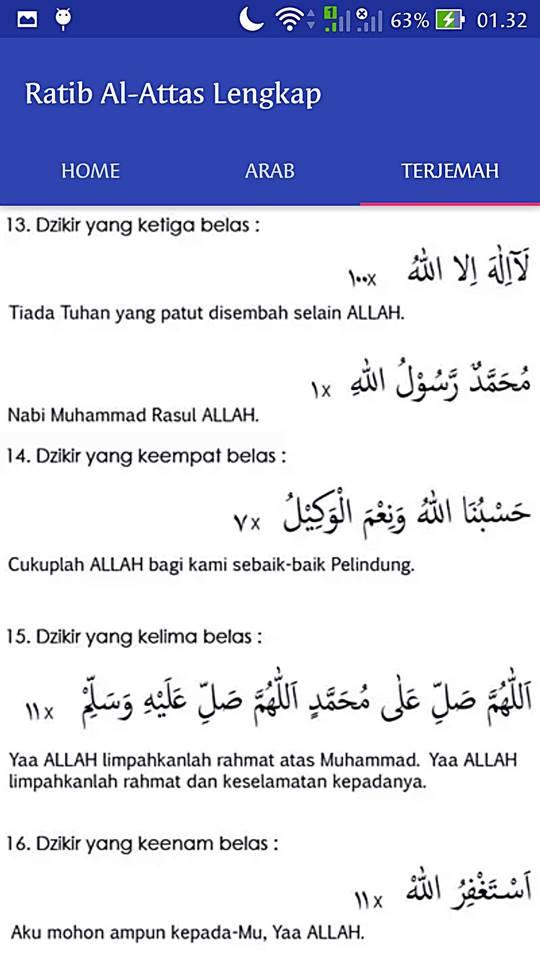 63% 01.32
Ratib Al-Attas Lengkap
HOME ARAB TERJEMAH
13. Dzikir yang ketiga belas :
لَآاِلٰهَ اِلا اللهُ ١٠٠x
Tiada Tuhan yang patut disembah selain ALLAH.
مُحَمَّدٌ رَّسُوْلُ اللهِ ١x
Nabi Muhammad Rasul ALLAH.
14. Dzikir yang keempat belas :
حَسْبُنَا اللهُ وَنِعْمَ الْوَكِيْلُ ٧x
Cukuplah ALLAH bagi kami sebaik-baik Pelindung.
15. Dzikir yang kelima belas :
اَللّٰهُمَّ صَلِّ عَلٰى مُحَمَّدٍ اَللّٰهُمَّ صَلِّ عَلَيْهِ وَسَلِّمْ ١١x
Yaa ALLAH limpahkanlah rahmat atas Muhammad. Yaa ALLAH
limpahkanlah rahmat dan keselamatan kepadanya.
16. Dzikir yang keenam belas :
اَسْتَغْفِرُ اللهْ ١١x
Aku mohon ampun kepada-Mu, Yaa ALLAH.